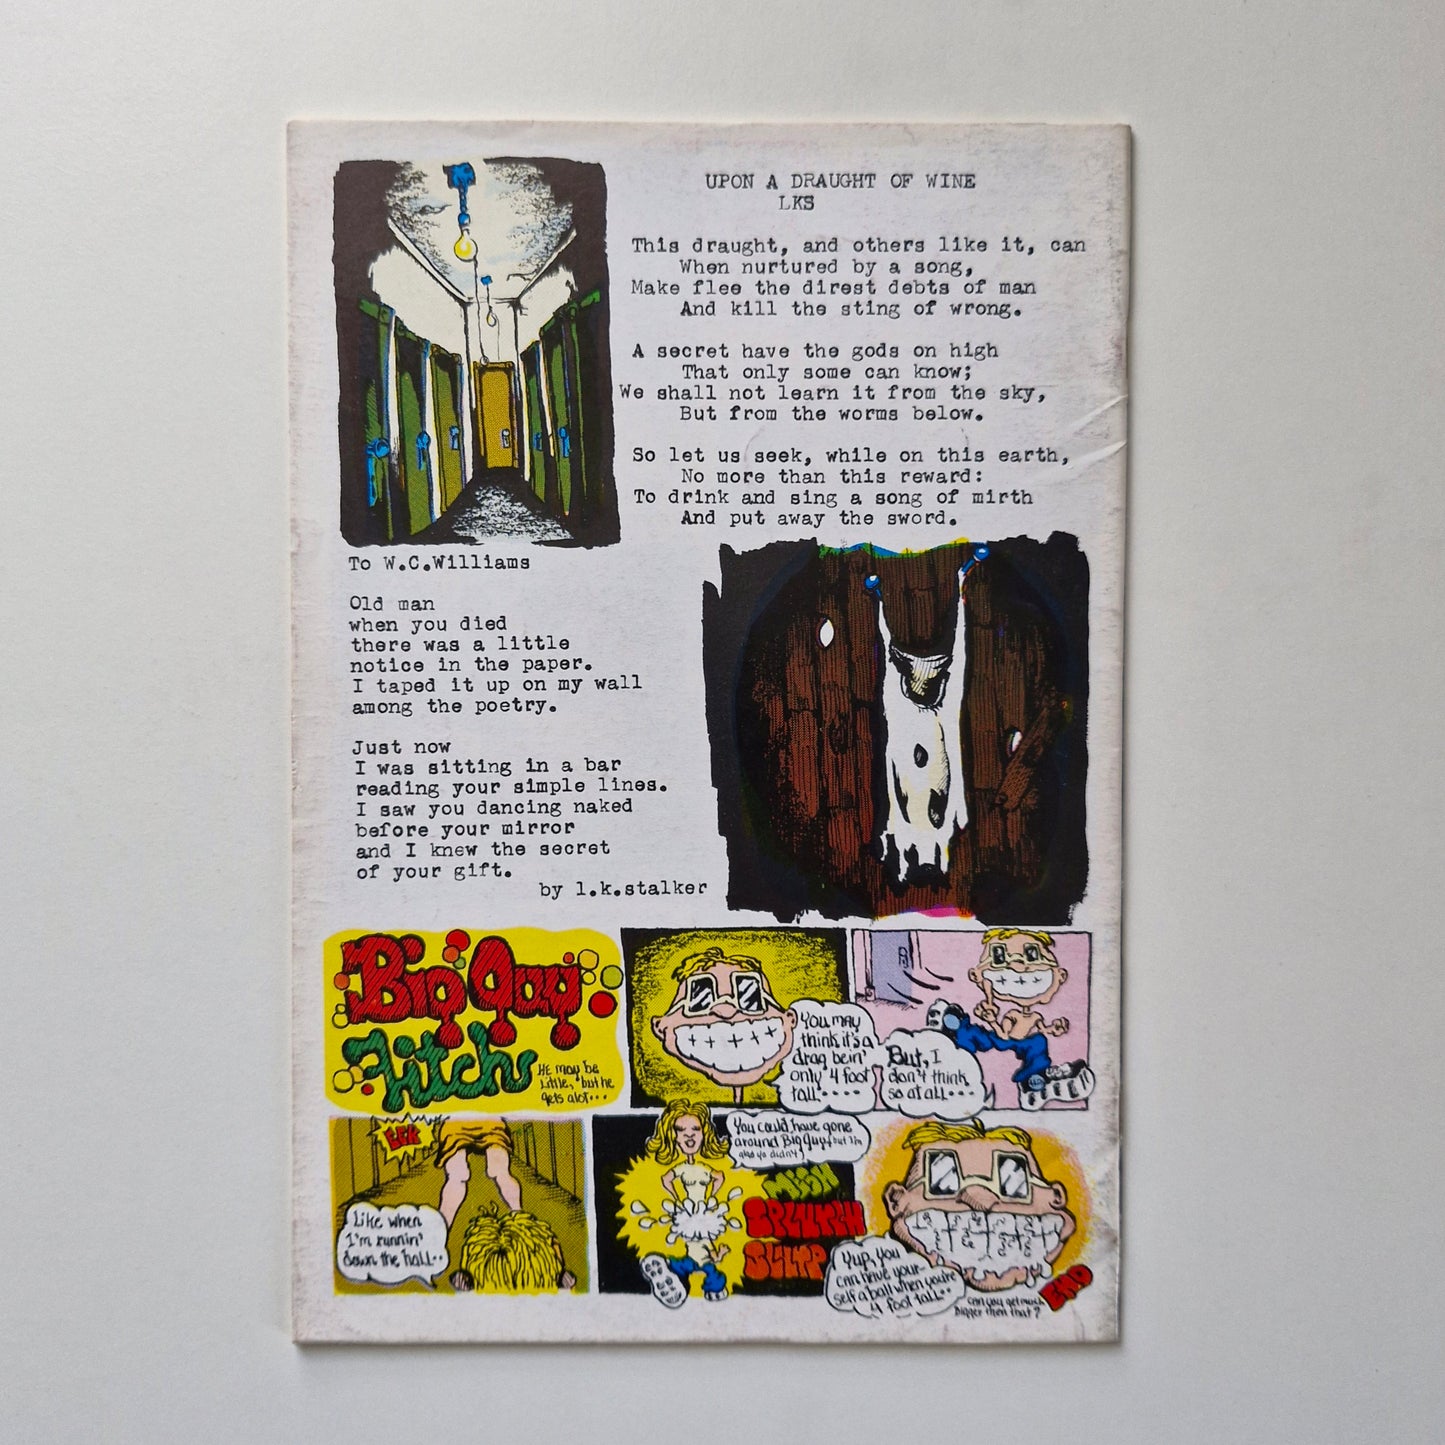 UPON A DRAUGHT OF WINE
LKS
This draught, and others like it, can
When nurtured by a song,
Make flee the direst debts of man
And kill the sting of wrong.
A secret have the gods on high
That only some can know;
We shall not learn it from the sky,
But from the worms below.
So let us seek, while on this earth,
No more than this reward:
To drink and sing a song of mirth
And put away the sword.
To W.C.Williams
Old man
when you died
there was a little
notice in the paper.
I taped it up on my wall
among the poetry.
Just now
I was sitting in a bar
reading your simple lines.
I saw you dancing naked
before your mirror
and I knew the secret
of your gift.
by l.k.stalker
Big Guy
Fitch
He may be
little, but he
gets alot...
You may
think it's a
drag bein'
only 4 foot
tall....
But, I
don't think
so at all...
EEK
Like when
I'm runnin'
down the hall..
You could have gone
around Big Guy, but I'm
glad ya didn't
SPLURCH
SLURP
Yup, you
can have your-
self a ball when you're
4 foot tall..
can you get much
Bigger then that?
END